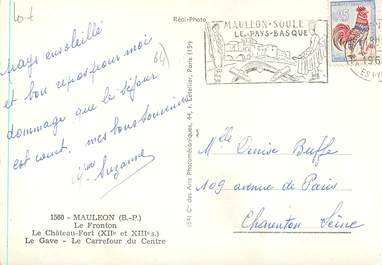 Réal-Photo
MAULEON-SOULE
LE-PAYS-BASQUE
pays ensoleillé
et bon repos pour moi
dommage que le séjour
est court. mes bons souvenirs
Suzanne
64
Melle Denise Buffe
109 avenue de Paris
Charenton Seine
1560 - MAULEON (B.-P.)
Le Fronton
Le Château-Fort (XIIe et XIIIe s.)
Le Gave - Le Carrefour du Centre
Cie des Arts Photomécaniques, 44, r. Letellier, Paris (15e)